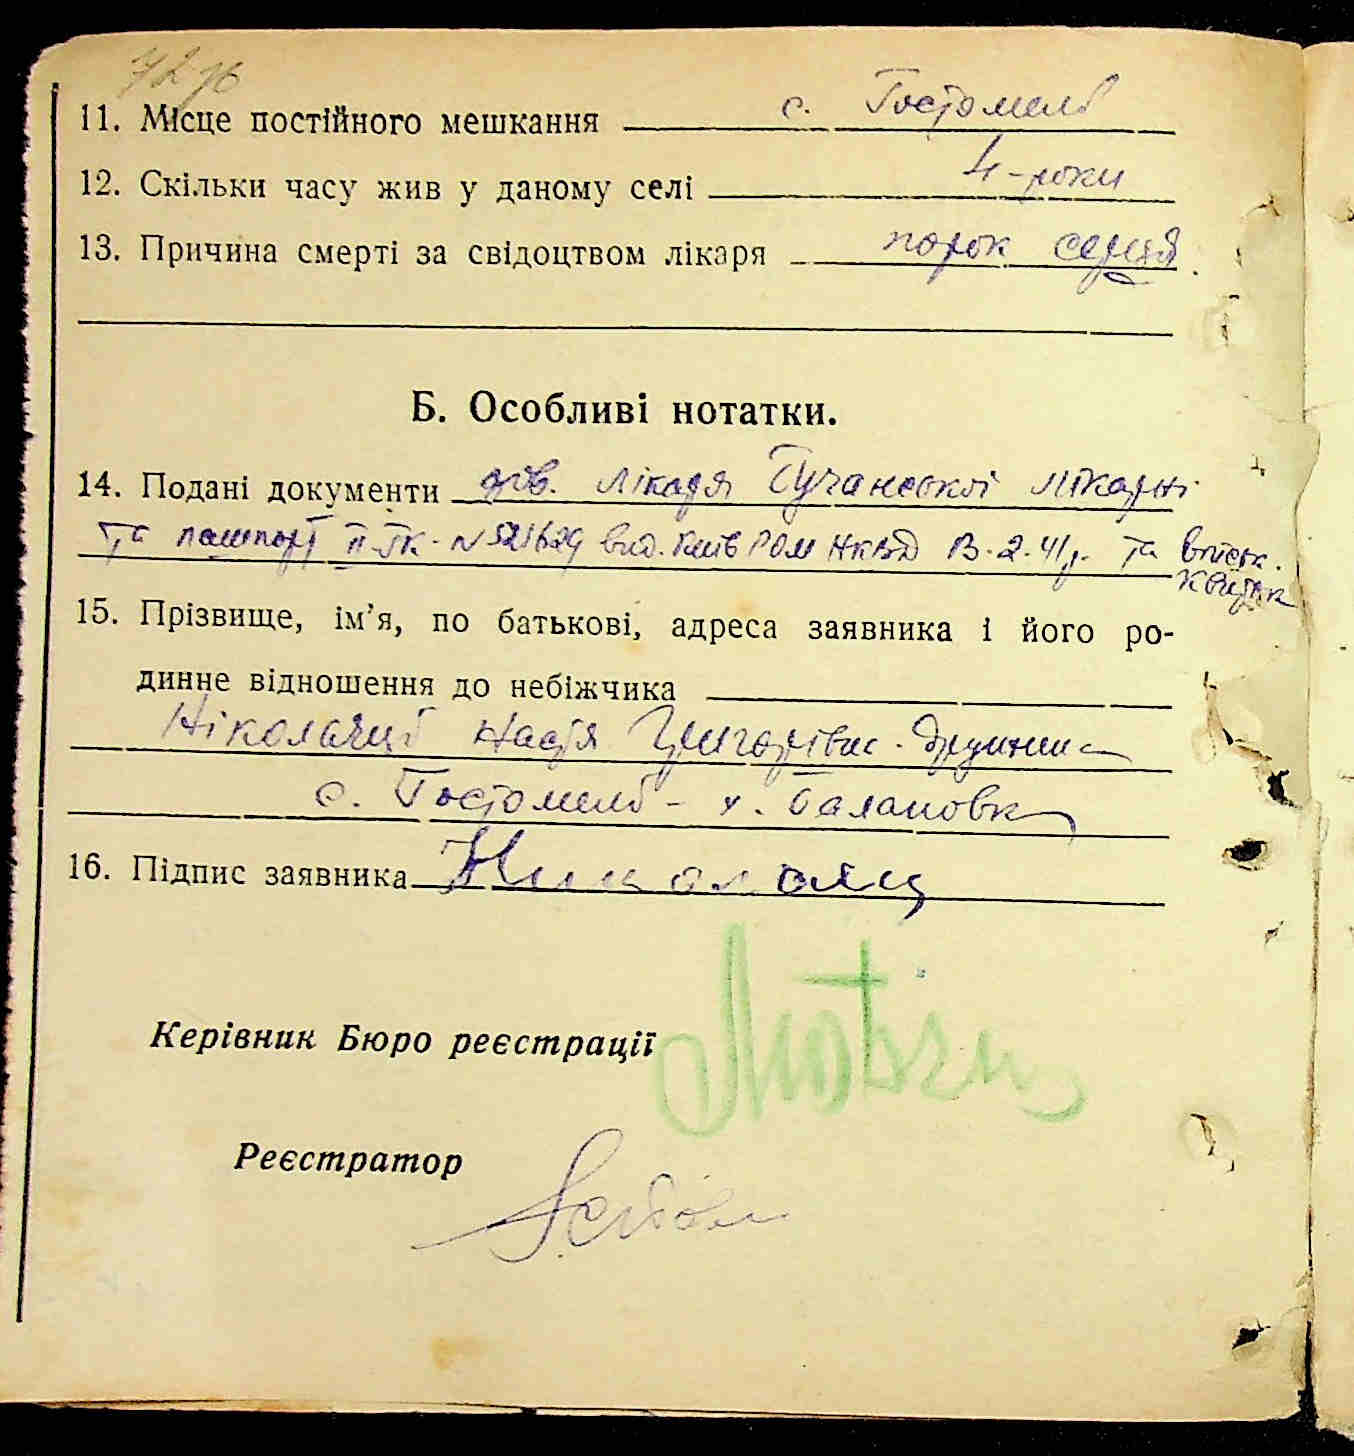 11. Місце постійного мешкання с. Гостомель
12. Скільки часу жив у даному селі 4-роки
13. Причина смерті за свідоцтвом лікаря порок серця
Б. Особливі нотатки.
14. Подані документи дов. лікаря Бучанської лікарні
та пашпорт II-ТК-N 521629 вид. Київ РОМ НКВД
та військ.
квиток
15. Прізвище, ім'я, по батькові, адреса заявника і його ро-
динне відношення до небіжчика
Ніколаяць Настя Григорівна - дружина
с. Гостомель - х. Балановка
16. Підпис заявника Николаяц
Керівник Бюро реєстрації
Реєстратор